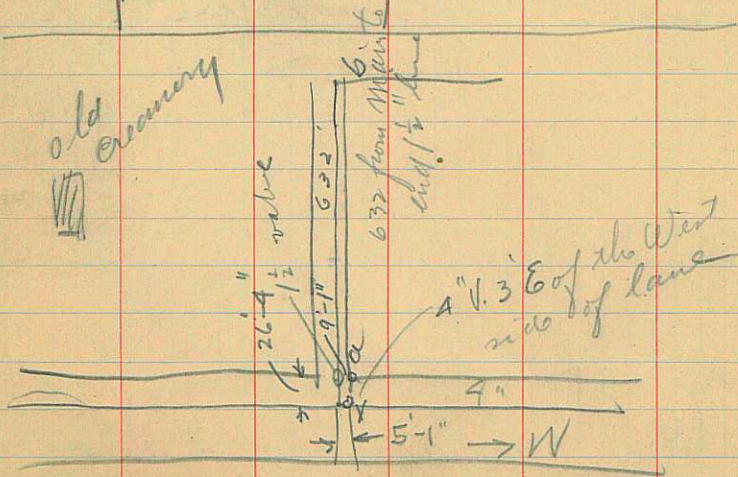 old
creamery
6'
632 from Main to
end 1 1/2" line
632'
1 1/2" valve
26'-4"
9'-1"
4" V. 3' E of the West
side of lane
4"
5'-1" → W